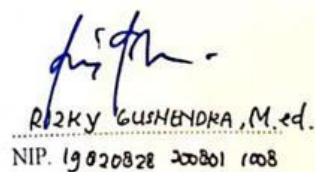 RIZKY GUSHENDRA, M.ed.
NIP. 19820828 200801 1008